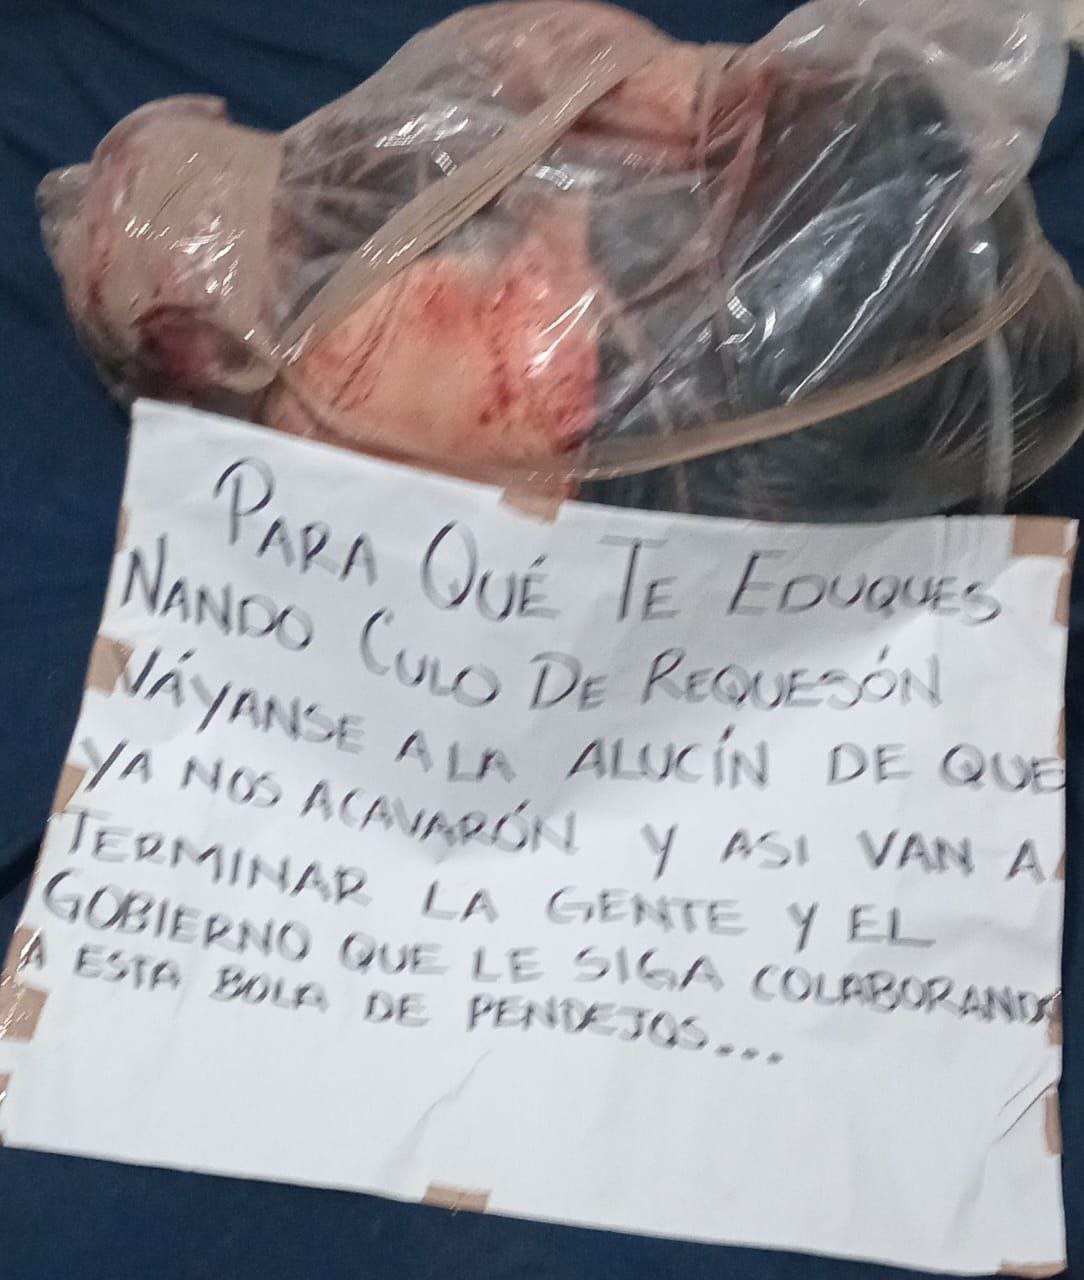 PARA QUÉ TE EDUQUES
NANDO CULO DE REQUESÓN
VÁYANSE A LA ALUCÍN DE QUE
YA NOS ACAVARÓN Y ASI VAN A
TERMINAR LA GENTE Y EL
GOBIERNO QUE LE SIGA COLABORANDO
A ESTA BOLA DE PENDEJOS...